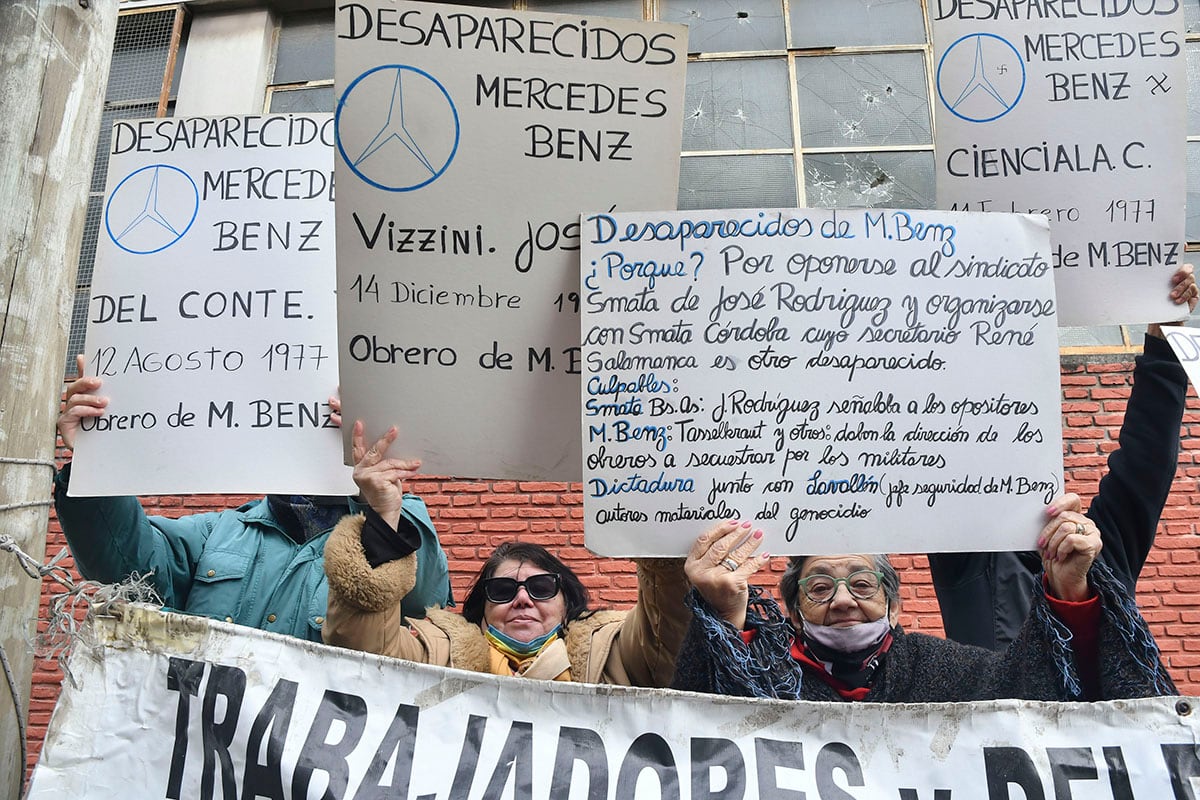 DESAPARECIDO
MERCEDE
BENZ
DEL CONTE.
12 AGOSTO 1977
Obrero de M. BENZ
DESAPARECIDOS
MERCEDES
BENZ
VIZZINI. JOS
14 Diciembre 19
Obrero de M. B
DESAPARECIDOS
MERCEDES
BENZ
CIENCIALA. C.
11 Febrero 1977
de M. BENZ
Desaparecidos de M. Benz
¿Porque? Por oponerse al sindicato
Smata de José Rodriguez y organizarse
con Smata Córdoba cuyo secretario René
Salamanca es otro desaparecido.
Culpables:
Smata Bs. As: J. Rodríguez señalaba a los opositores
M. Benz: Tasselkraut y otros: daban la dirección de los
obreros a secuestrar por los militares
Dictadura junto con Lavallén (jefe seguridad de M. Benz)
autores materiales del genocidio
TRABAJADORES y DELE